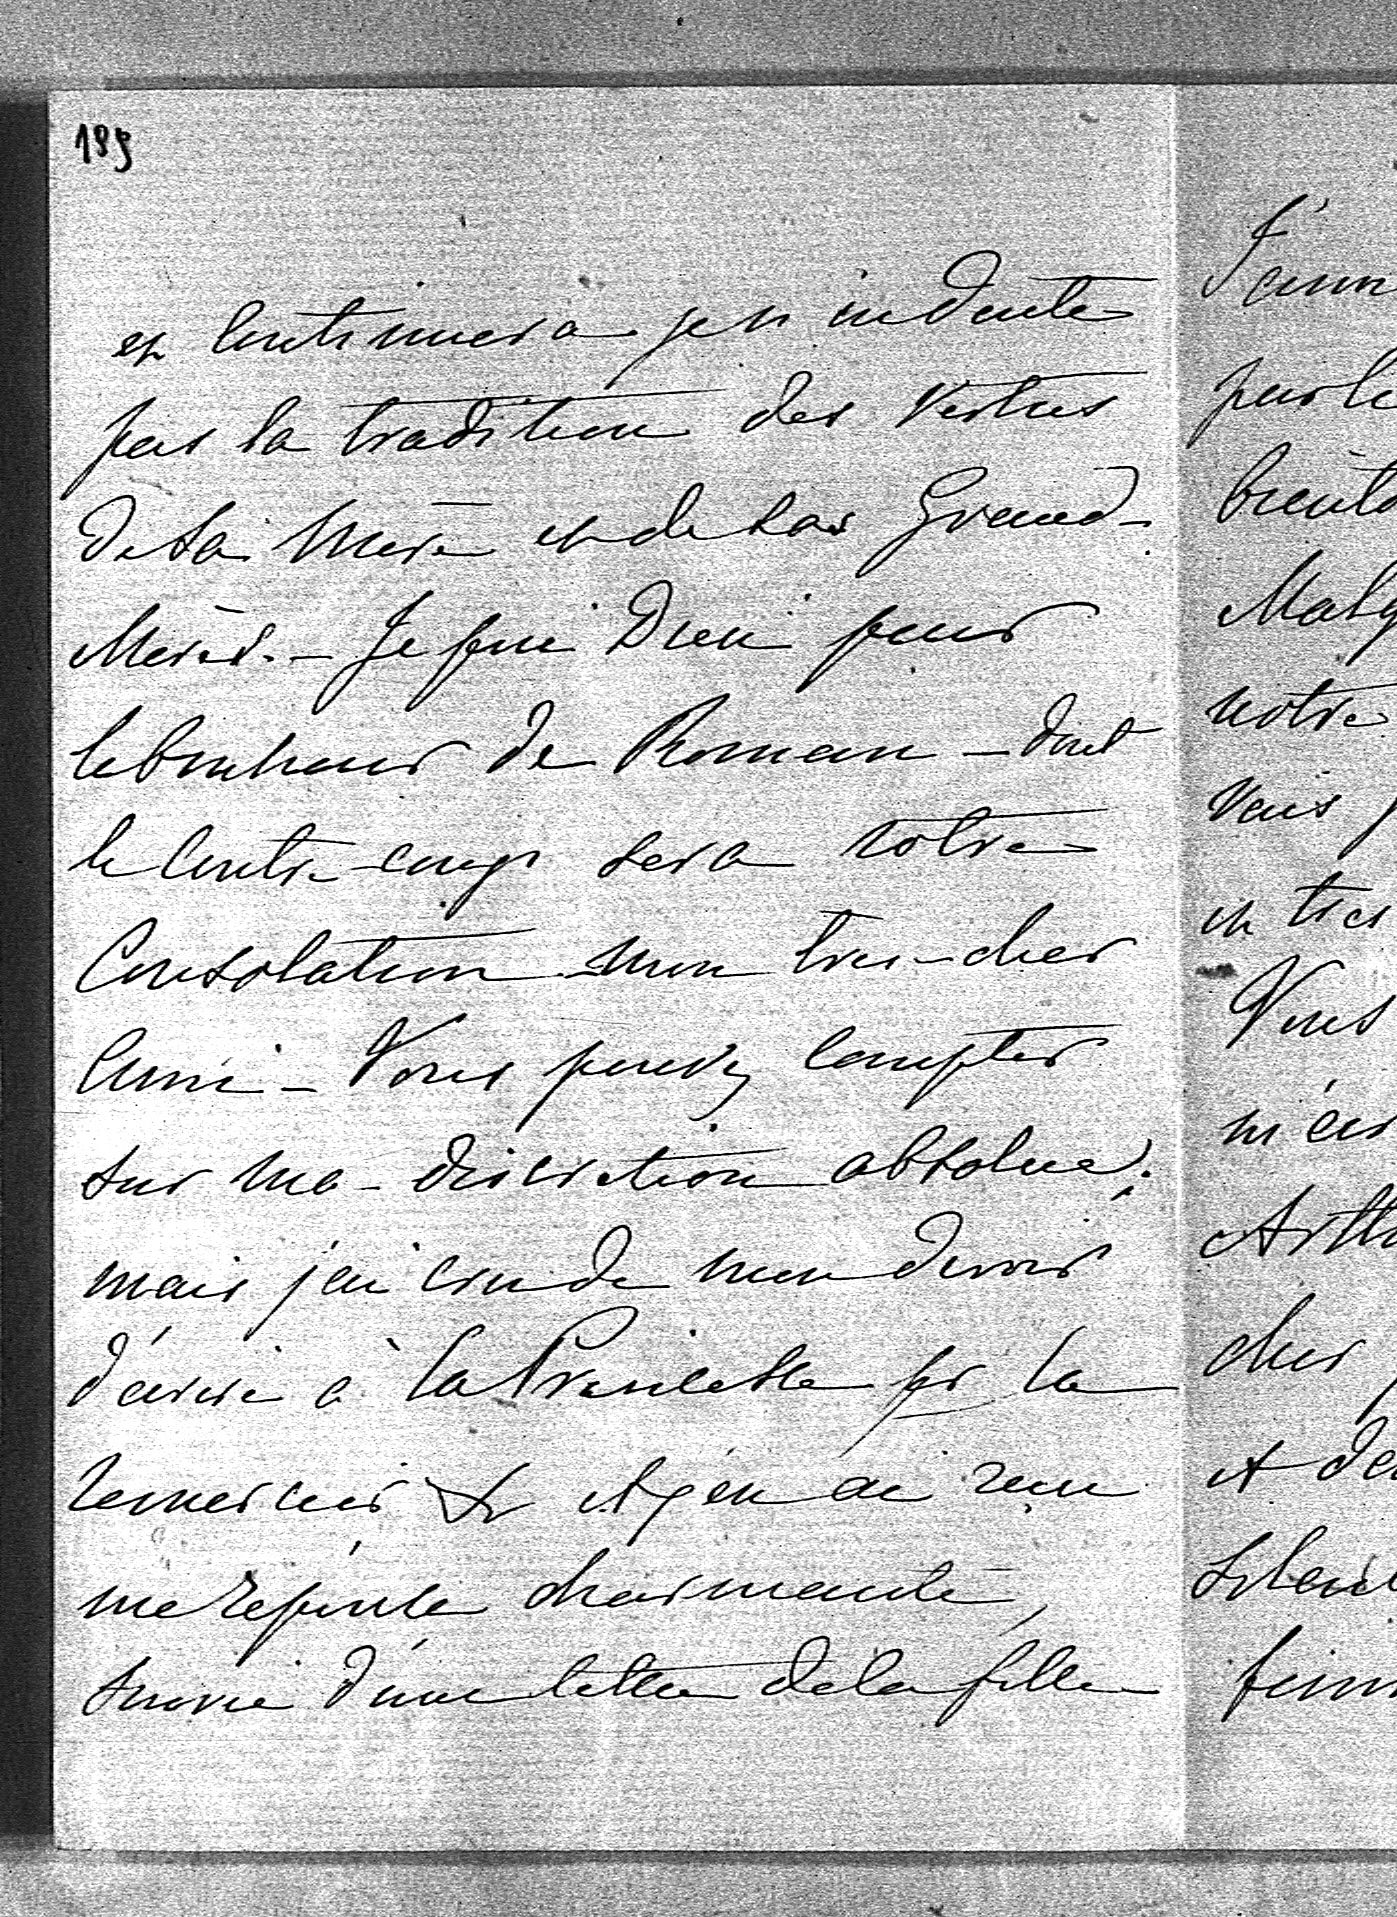 189
et continuera je n'en doute
pas la tradition des vertus
de sa Mère et de sa Grand-
Mère. – Je prie Dieu pour
le bonheur de Roman – dont
le contre-coup sera votre
Consolation mon très-cher
Ami – Vous pouvez compter
sur ma discrétion absolue;
mais j'ai cru de mon devoir
d'écrire à la Princesse pr la
remercier & et j'en ai reçu
une réponse charmante,
suivie d'une lettre de la fille
J'aim
parle
bientô
notre
vous
et très
Vous
cher
et de